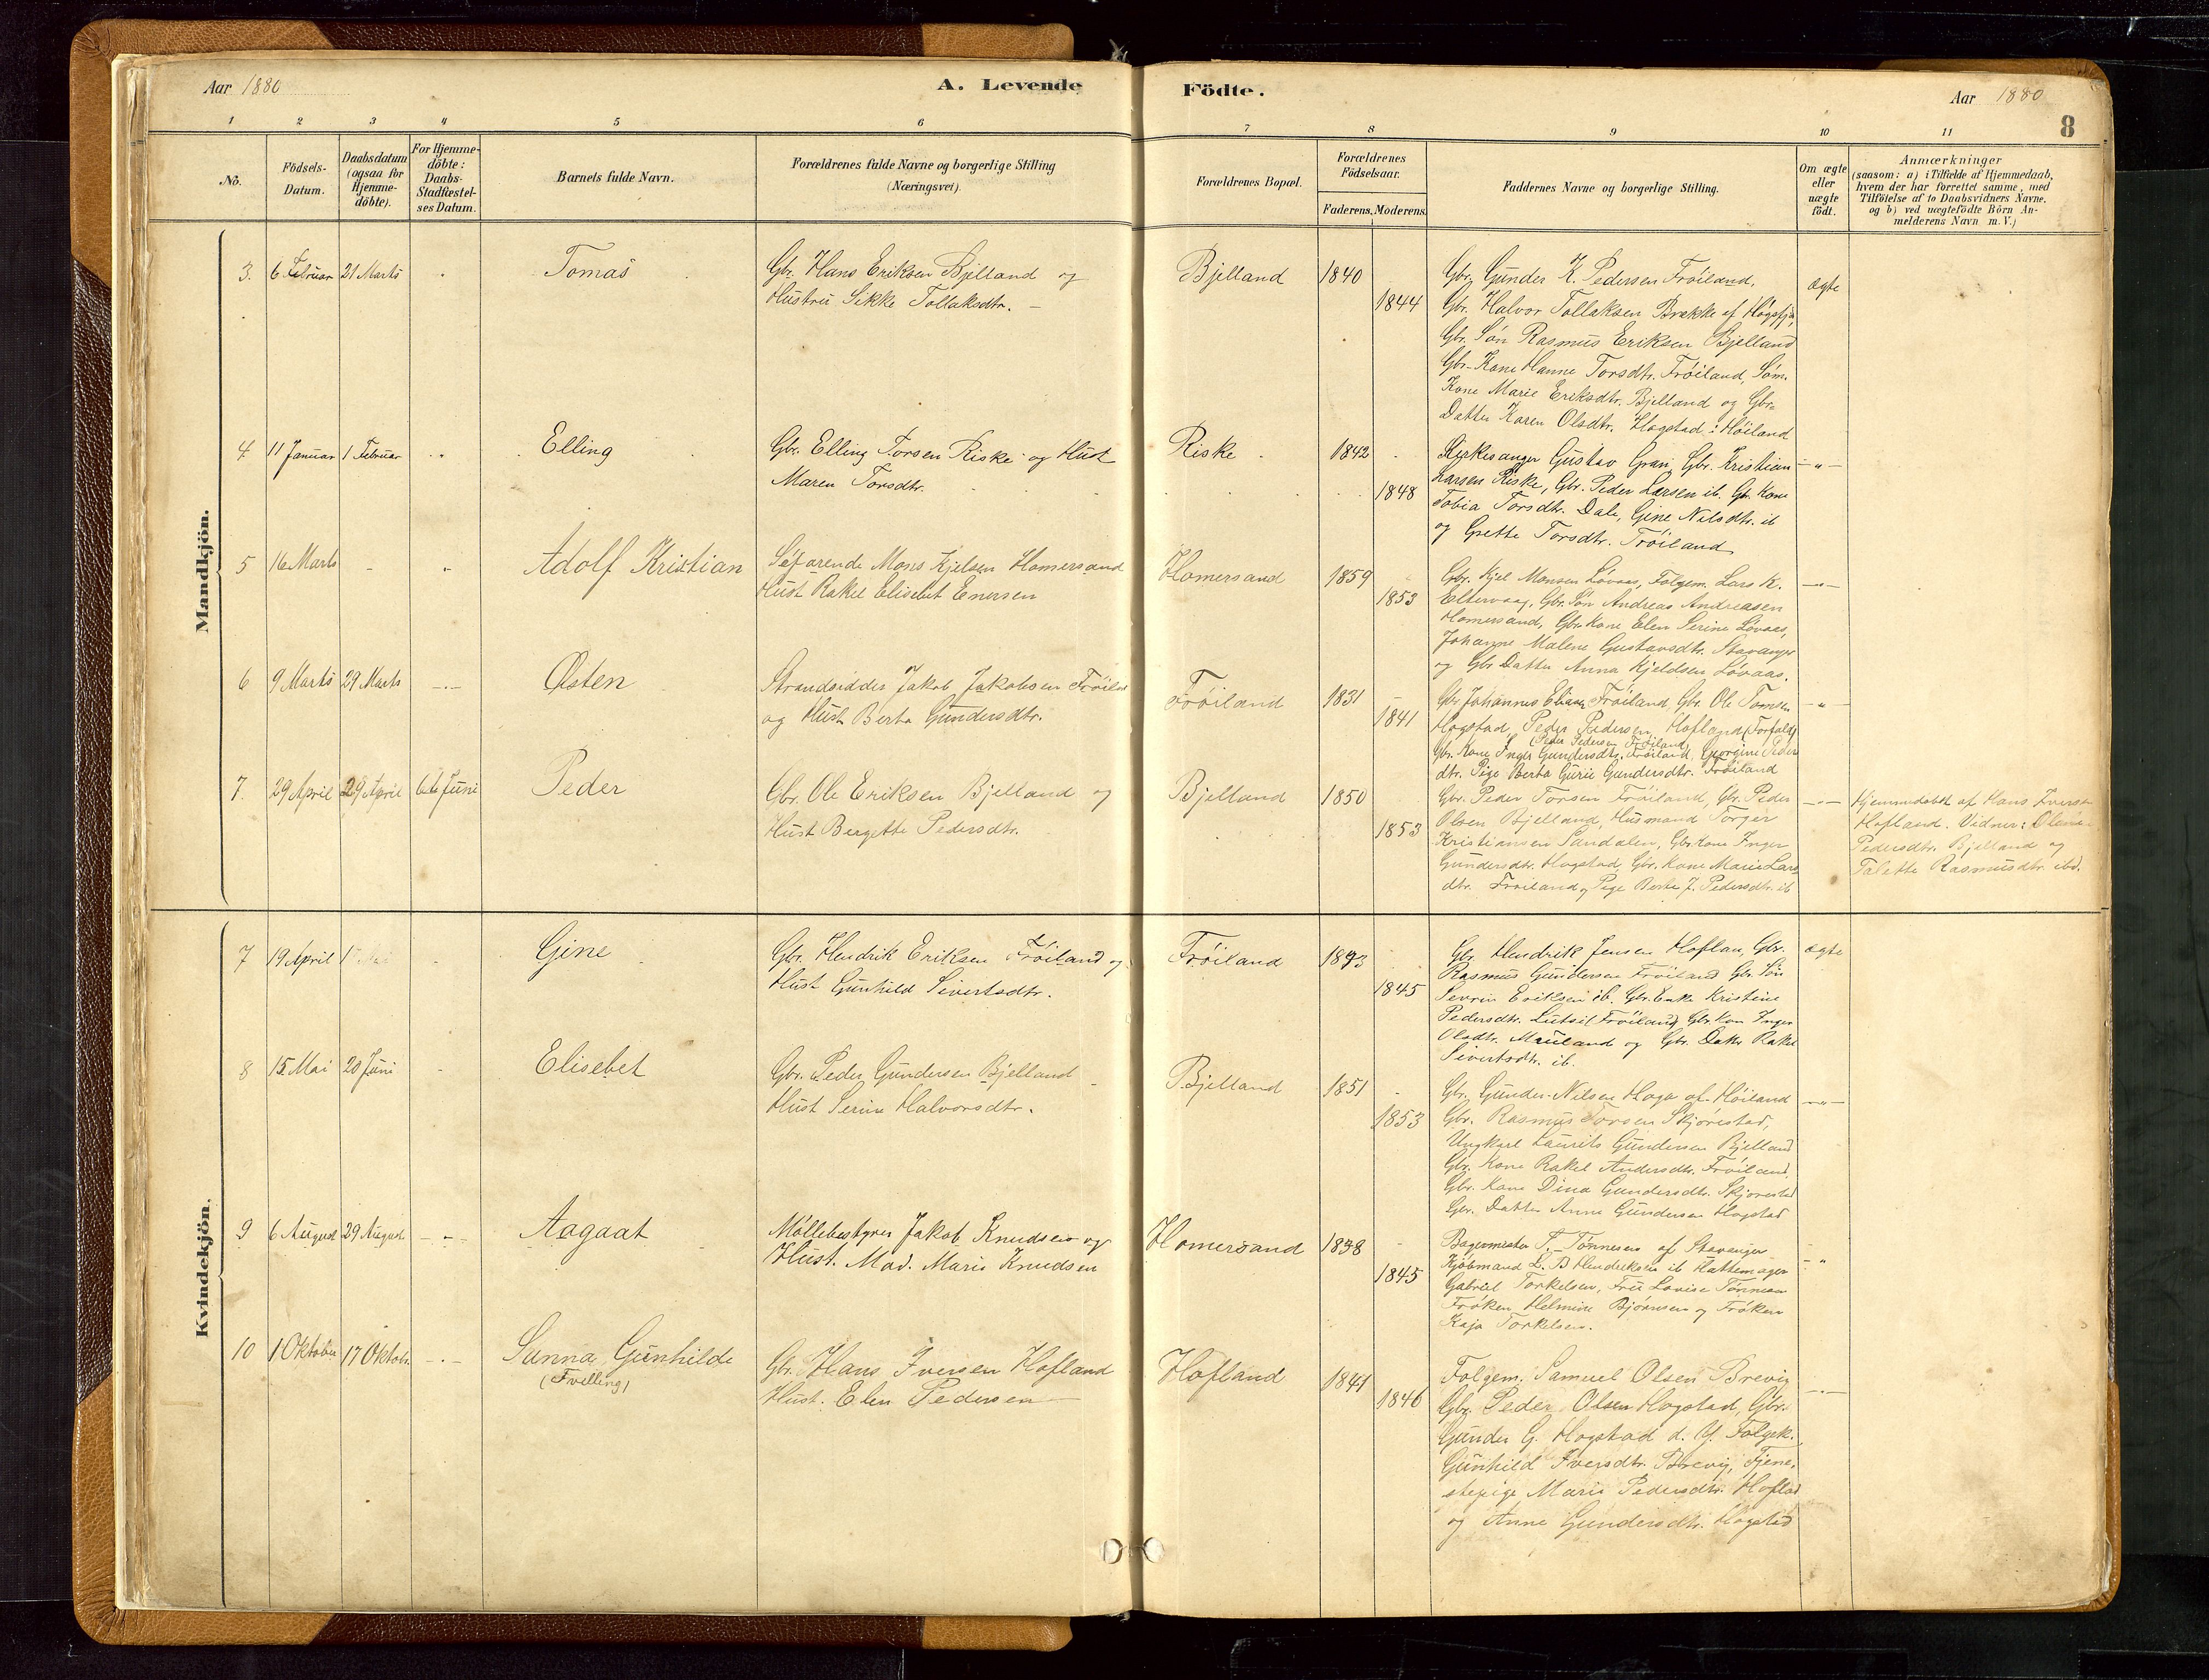 Aar 1880
A. Levende
Födte.
Aar 1880
8
1 2 3 4 5 6 7 8 9 10 11
No.
Födsels-
Datum.
Daabsdatum
(ogsaa for
Hjemme-
döbte).
For Hjemme-
döbte:
Daabs-
Stadfæstel-
ses Datum.
Barnets fulde Navn.
Forældrenes fulde Navne og borgerlige Stilling
(Næringsvei).
Forældrenes Bopæl.
Forældrenes
Födselsaar.
Faderens. Moderens.
Faddernes Navne og borgerlige Stilling.
Om ægte
eller
uægte
födt.
Anmærkninger
(saasom: a) i Tilfælde af Hjemmedaab,
hvem der har forrettet samme, med
Tilföielse af to Daabsvidners Navne,
og b) ved uægtefödte Börn An-
melderens Navn m. V.)
Mandkjön.
3. 6 Februar 21 Marts
Tomas
Gbr. Hans Eriksen Bjelland og
Hustru Sikke Tollaksdtr. -
Bjelland
1840
1844
Gbr. Gunder K. Pedersen Fröiland,
Gbr. Halvor Tollaksen Brekke af Högsfj.
Gbr. Sön Rasmus Eriksen Bjelland
Gbr. Kone Hanne Torsdtr. Fröiland, Söm.
Kone Marie Eriksdtr. Bjelland og Gbr.
Datter Karen Olsdtr. Hogstad i Höiland
ægte
4 11 Januar 1 Februar
Elling
Gbr. Elling Torsen Riske og Hust
Maren Torsdtr.
Riske
1842
1848
Kirkesanger Gustav Gran, Gbr. Kristian
Larsen Riske, Gbr. Peder Larsen ib. Gb. Kone
Tobia Torsdtr. Dale, Gine Nilsdtr. ib
og Grette Torsdtr. Fröiland
-"-
5 16 Marts
Adolf Kristian
Söfarende Mons Kjelsen Homersand
Hust Rakel Elisebet Enersen
Homersand
1859
1853
Gbr. Kjel Monsen Lövaas, Folgem. Lars K.
Eltervaag, Gbr. Sön Andreas Andreasen
Homersand, Gbr. Kone Elen Serine Lövaas,
Johanne Malene Gustavsdtr. Stavanger
og Gbr Datter Anna Kjeldsen Lövaas.
-"-
6 9 Marts 29 Marts
Østen
Strandsidder Jakob Jakobsen Fröiland
og Hust Berta Gundersdtr.
Fröiland
1831
1841
Gbr Johannes Fröiland, Gbr. Ole Tomsen
Hogstad, Peder Pedersen Hofland (Forfald)
(Peder Pedersen Fröiland)
Gbr. Kone Inger Gundersdtr. Fröiland, Georgine Peders
dtr. Pige Berta Gurie Gundersdtr. Fröiland
-"-
7. 29 April 29 April 6te Juni
Peder
Gbr. Ole Eriksen Bjelland og
Hust Bergette Pedersdtr.
Bjelland
1850
1853
Gbr. Peder Torsen Fröiland, Gbr. Peder
Olsen Bjelland, Husmand Torger
Kristiansen Sandalen, Gbr. Kone Inger
Gundersdtr. Hogstad, Gbr. Kone Marie Lars
dtr. Fröiland og Pige Berte J. Pedersdtr. ib
-"-
Hjemmedöbt af Hans Iversen
Hofland. Vidner:
Pedersdtr. Bjelland og
Talette Rasmusdtr. ibd.
Kvindekjön.
7 19 April
Gine
Gbr. Hendrik Eriksen Fröiland og
Hust Gunhild Sivertsdtr.
Fröiland
1843
1845
Gbr. Hendrik Jensen Hoflan, Gbr.
Rasmus Gundersen Fröiland Gbr. Sön
Sevrin Eriksen ib. Gbr. Enke Kristine
Pedersdtr. Lutsi (Fröiland) Gbr. Kon Inger
Olsdtr. Mauland og Gbr. Datter Rakel
Sivertsdtr. ib.
ægte
8 15 Mai 20 Juni
Elisebet
Gbr. Peder Gundersen Bjelland
Hust Serine Halvorsdtr.
Bjelland
1851
1853
Gbr. Gunder Nilsen Hoga af Höiland
Gbr. Rasmus Torsen Skjörestad,
Ungkarl Laurits Gundersen Bjelland
Gbr. Kone Rakel Andersdtr. Fröiland,
Gbr. Kone Dina Gundersdtr. Skjörestad
Gbr. Datter Anne Gundersen Hogstad
-"-
9 6 August 29 August
Aagaat
Møllebestyrer Jakob Knudsen og
Hust. Mad. Marie Knudsen
Homersand
1838
1845
Bagermester T. Tönnesen af Stavanger
Kjöbmand L. B Hendriksen ib Hattemager
Gabriel Torkelsen, Fru Lovise Tönnesen
Fröken Helmine Björnsen og Fröken
Kaja Torkelsen.
-"-
10 1 Oktober 17 Oktobr.
Sanna Gunhilde
(Tvilling)
Gbr. Hans Iversen Hofland
Hust. Elen Pedersen
Hofland
1841
1846
Folgem. Samuel Olsen Brevig
Gbr. Peder Olsen Hogstad, Gbr.
Gunder G. Hogstad d. Y. Folgek.
Gunhild Iversdtr. Brevig, Tjene-
stepige Marie Pedersdtr. Hoflad
og Anne Gundersdtr. Hogstad